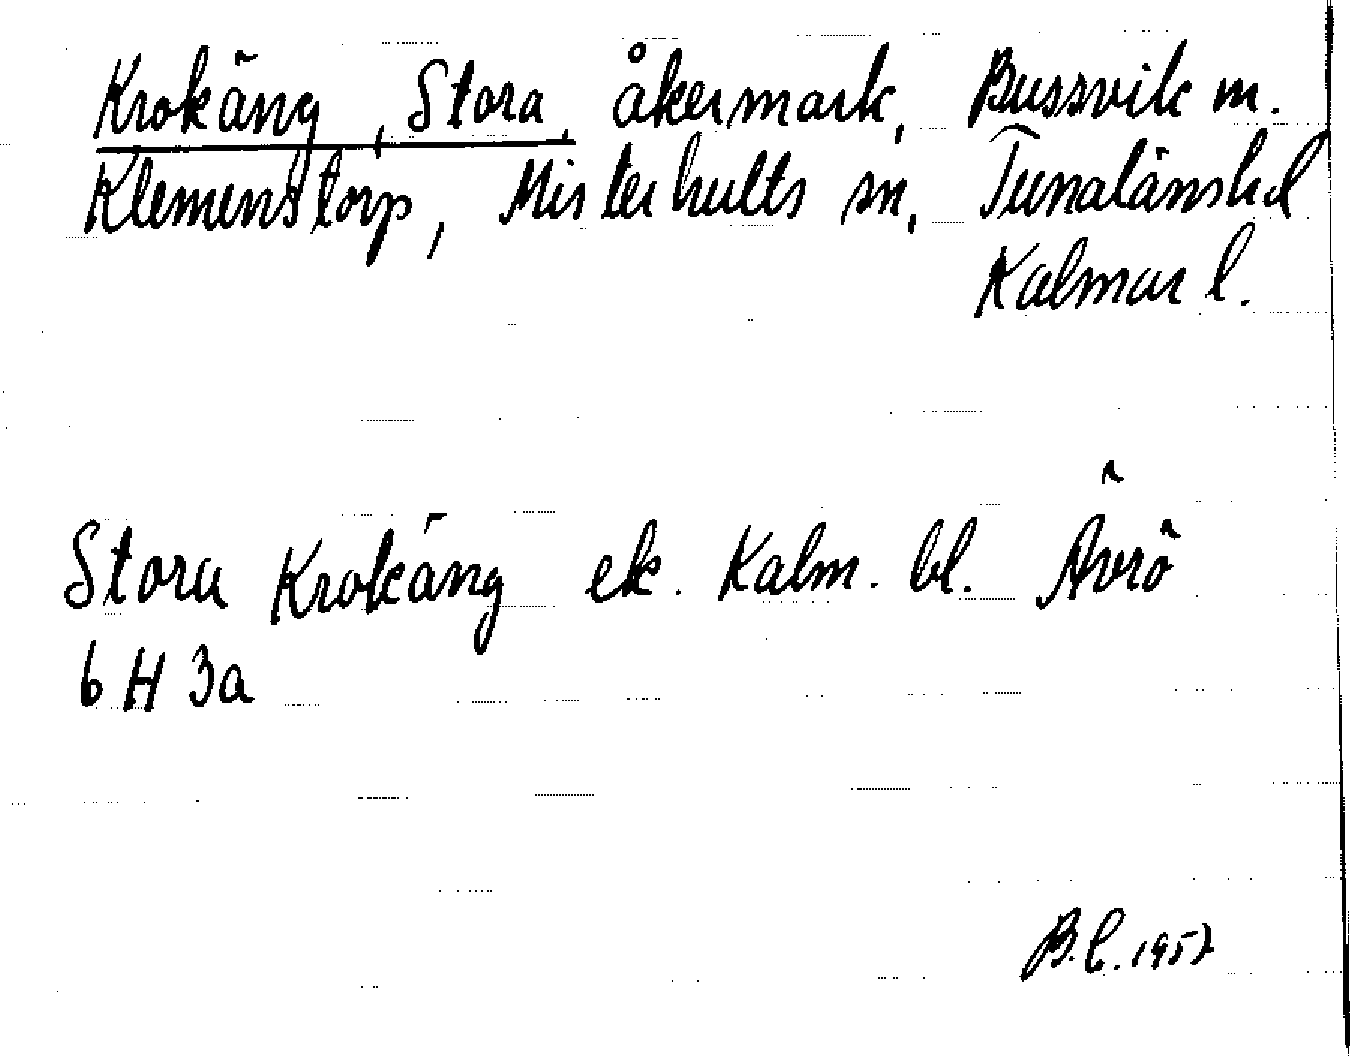 Krokäng, Stora, åkermark, Bussvik m.
Klemenstorp, Misterhults sn, Tunalänshd
Kalmar l.
Stora Krokäng ek. Kalm. bl. Ävrö
6 H 3a
B.C. 1957